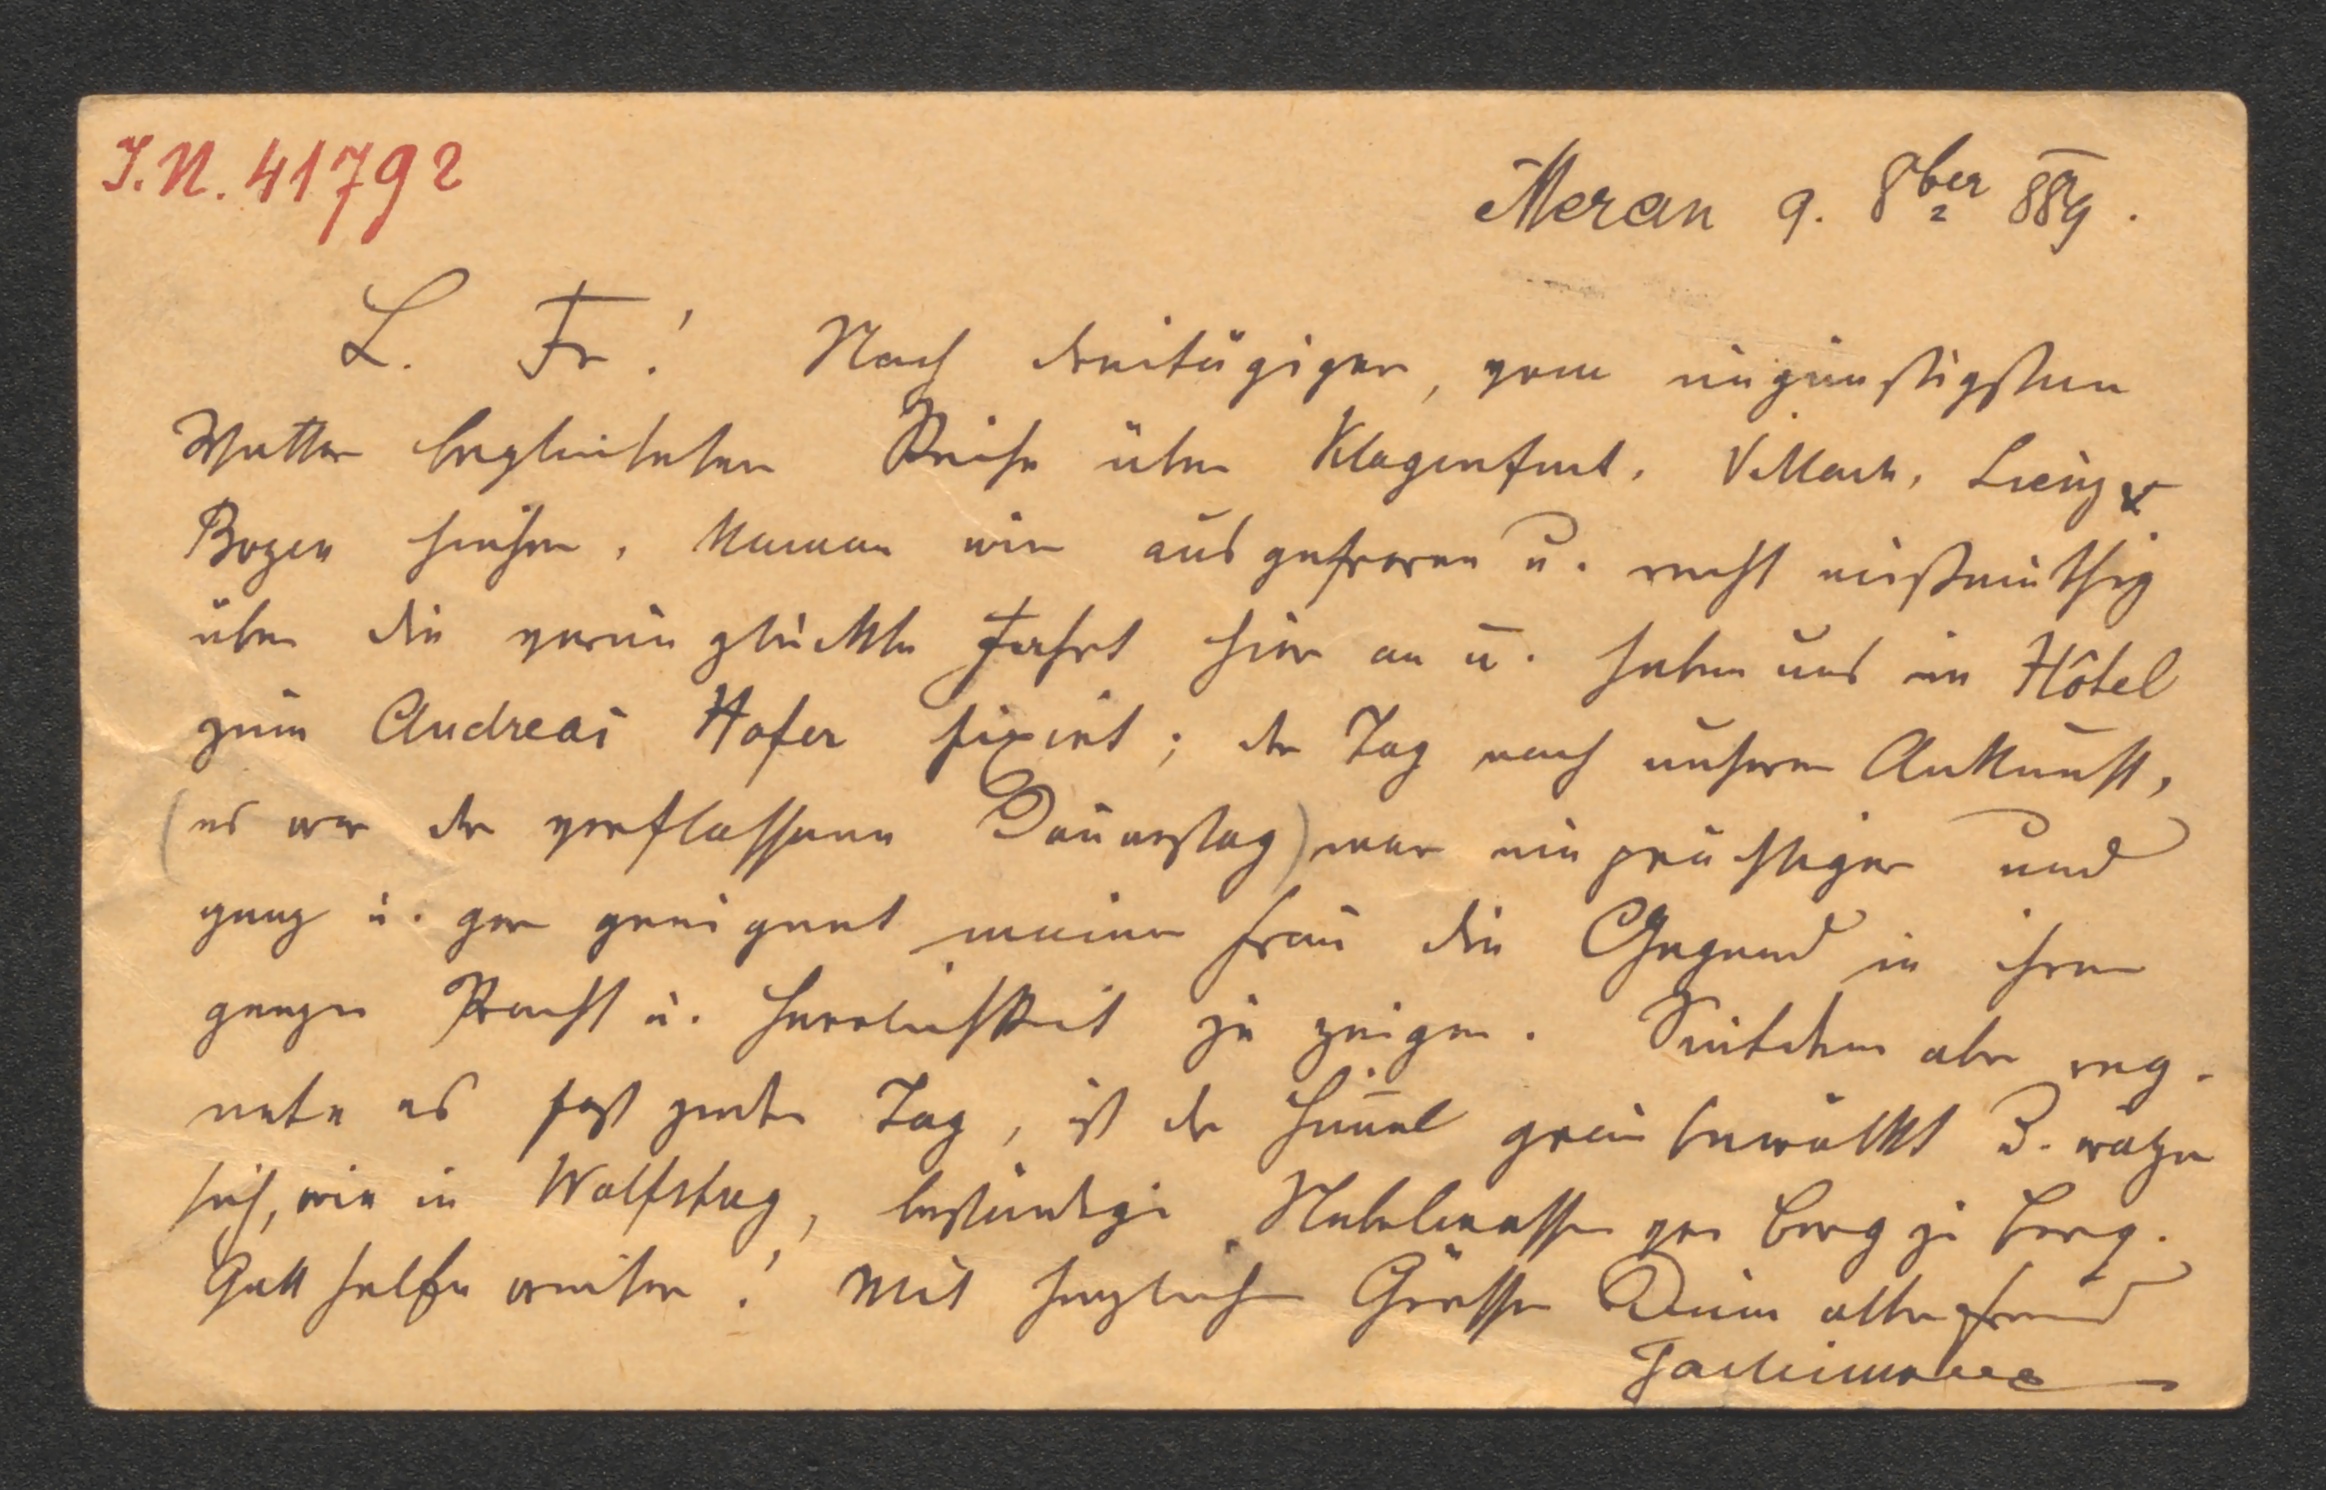 I.N. 41792
Meran 9. 8ber 889.
L. Fr.! Nach dreitägiger, vom ungünstigsten
Wetter begleiteten Reise über Klagenfurt, Villach, Lienz &
Bozen hieher, kamen wir ausgefroren u. recht mißmuthig
über die verunglückte Fahrt hier an u. haben uns im Hôtel
zum Andreas Hofer fixirt; der Tag nach unserer Ankunft,
(es war der verflossene Donnerstag) war ein prächtiger und
ganz u. gar geeignet meiner Frau die Gegend in ihrer
ganzen Pracht u. Herrlichkeit zu zeigen. Seitdem aber reg-
nete es fast jeden Tag, ist der Himmel grau bewölkt u. wälzen
sich, wie in Wolfsberg, beständige Nebelmassen von Berg zu Berg.
Gott helfe weiter! Mit herzlichen Grüssen Dein alter Freund